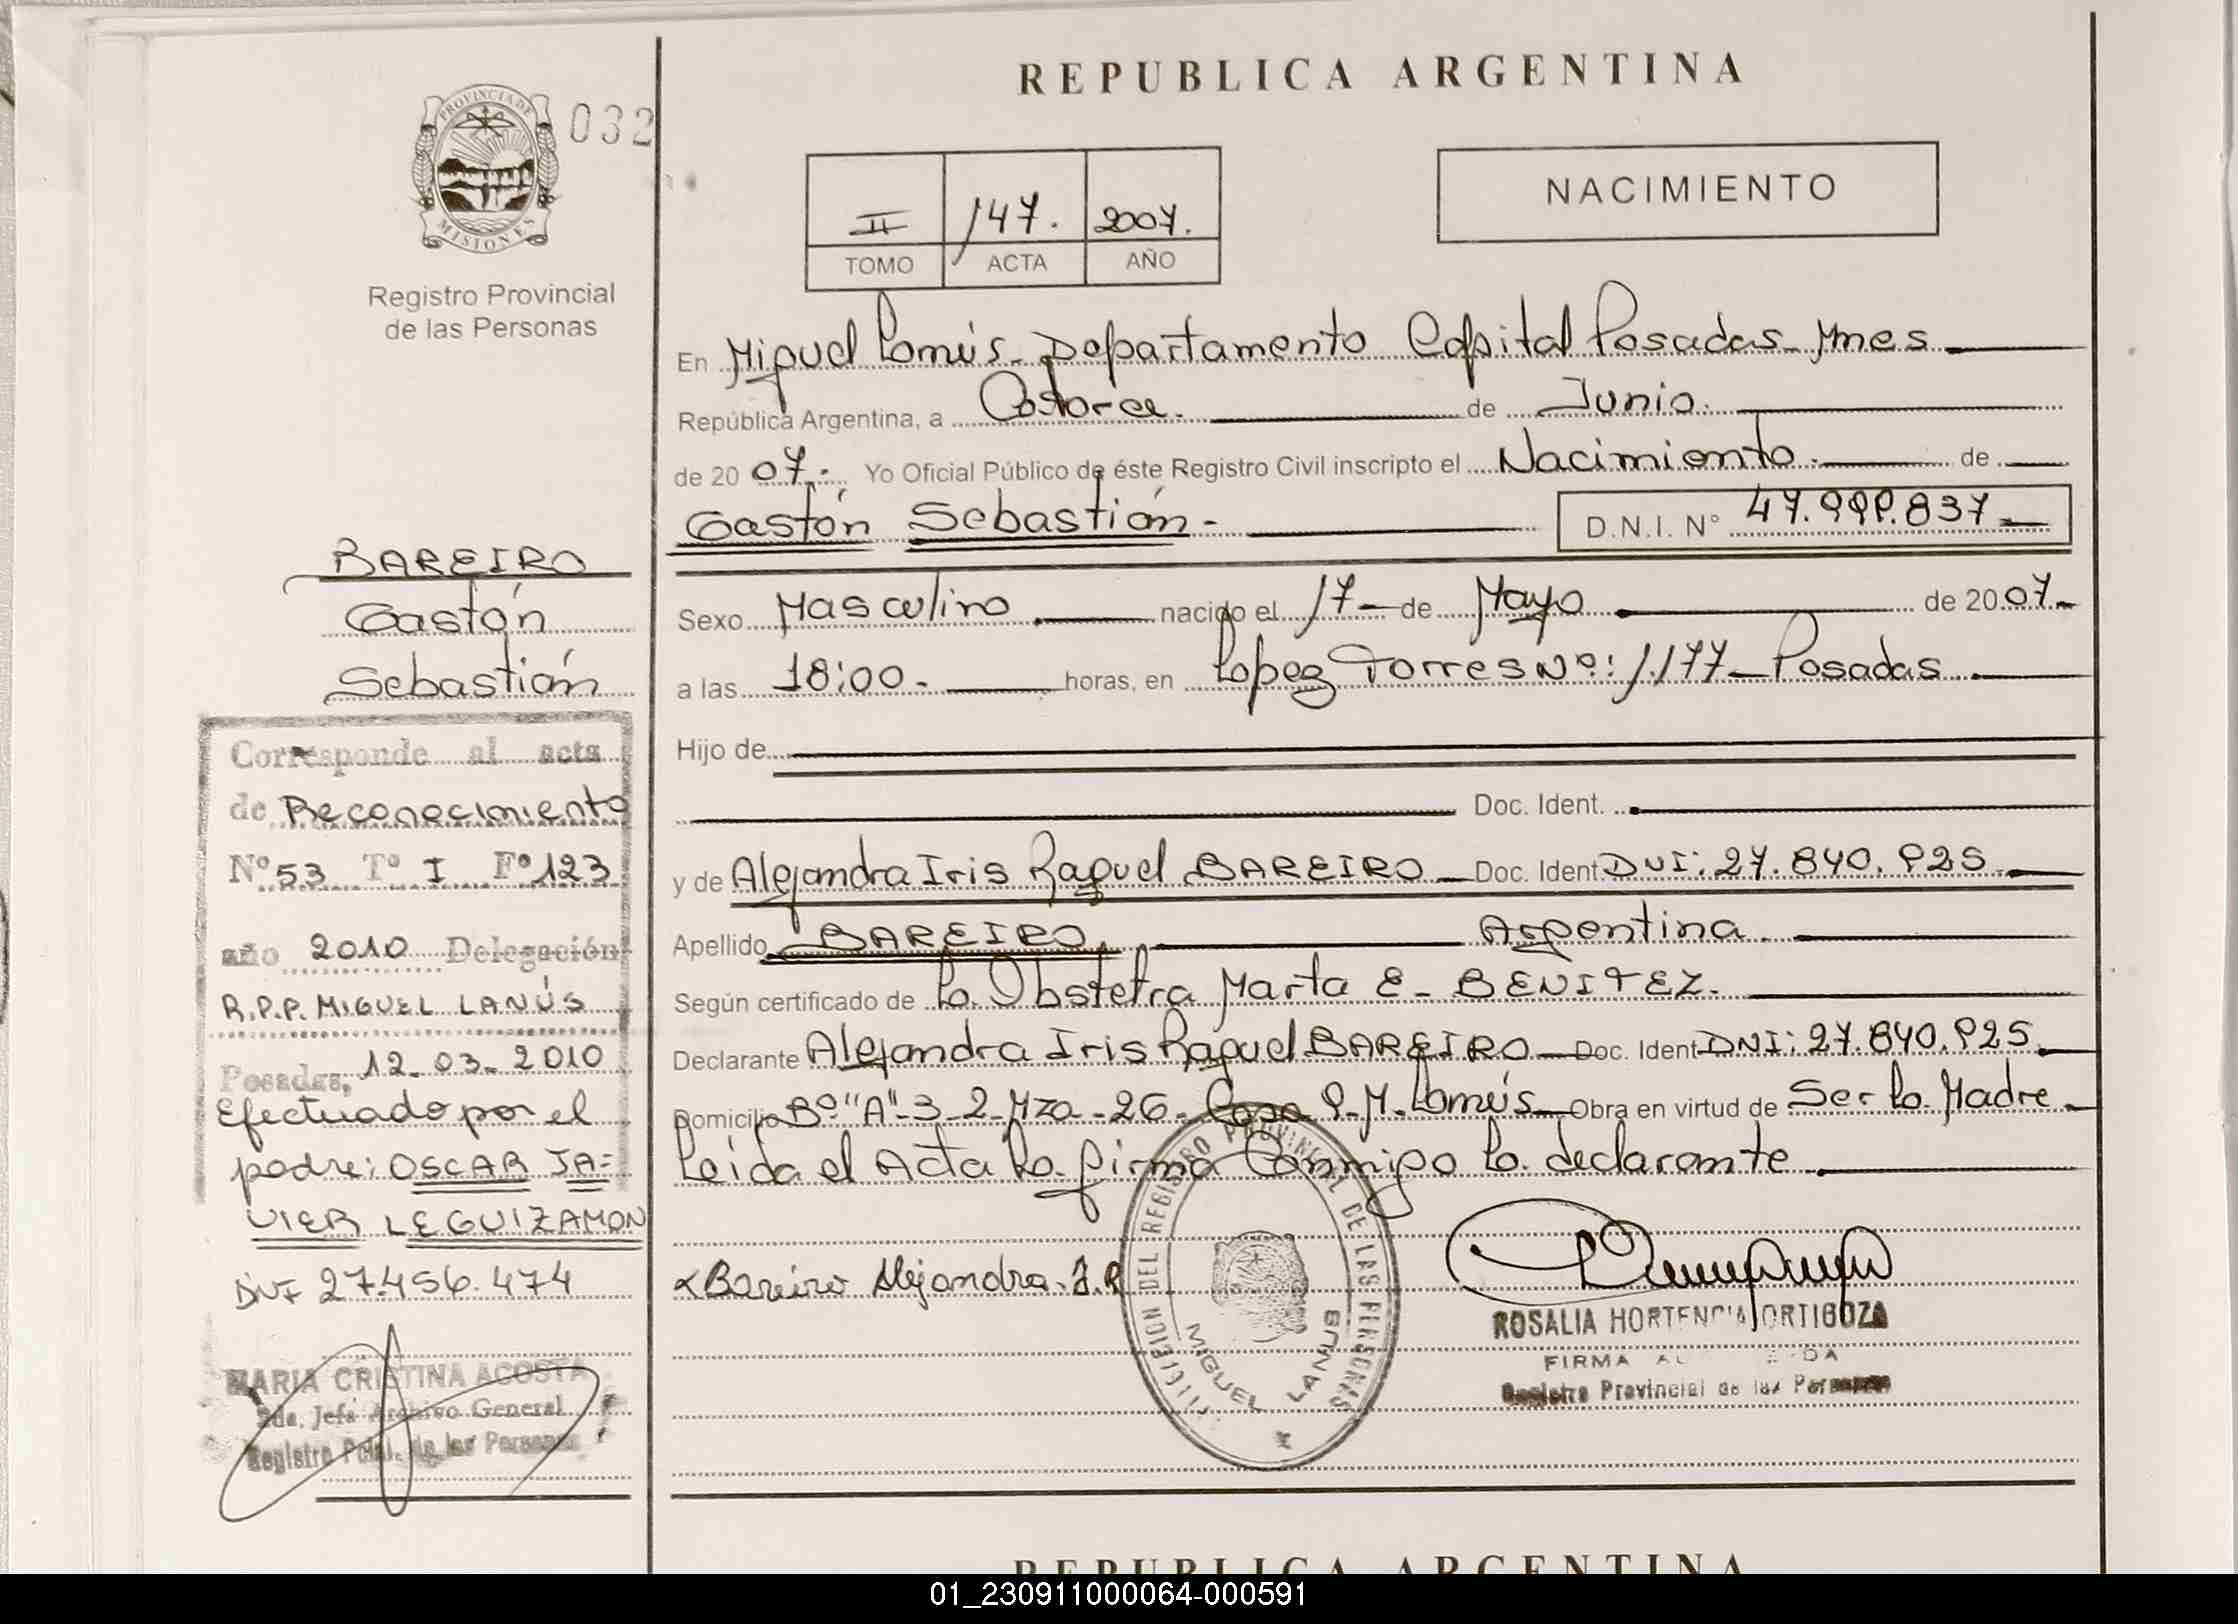 REPUBLICA ARGENTINA
PROVINCIA DE
MISIONES
032
Registro Provincial
de las Personas
II 147. 2007.
TOMO ACTA AÑO
NACIMIENTO
En Miguel Lanús Departamento Capital Posadas Mnes
República Argentina, a Catorce. de Junio.
de 20 07. Yo Oficial Público de éste Registro Civil inscripto el Nacimiento. de
Gastón Sebastián- D.N.I. N° 47.999.837
Sexo Masculino nacido el 17 de Mayo de 20 07
a las 18:00. horas, en Lopez Torres Nº: 1.177 Posadas
Hijo de
Doc. Ident.
y de Alejandra Iris Raquel BAREIRO Doc. Ident. DNI: 27.840.925
Apellido BAREIRO Argentina.
Según certificado de la Obstetra Marta E- BENITEZ.
Declarante Alejandra Iris Raquel BAREIRO Doc. Ident DNI: 27.840.925
Domicilio Bº "A"-3-2-Mza-26- Casa 9-M. Lanús Obra en virtud de Ser la Madre
Leída el Acta la firma Conmigo la declarante
x Bareiro Alejandra. I. R
DEL REGISTRO PROVINCIAL DE LAS PERSONAS
MIGUEL LANUS
ROSALIA HORTENCIA ORTIGOZA
FIRMA
Registro Provincial de las Personas
BAREIRO
Gastón
Sebastián
Corresponde al acta
de Reconocimiento
Nº 53 Tº I Fº 123
año 2010 Delegación
R.P.P. MIGUEL LANÚS
Posadas, 12-03-2010
Efectuado por el
padre: OSCAR JA=
VIER LEGUIZAMON
DNI 27.456.474
MARIA CRISTINA ACOSTA
2da. Jefa Archivo General
Registro Pcial. de las Personas
REPUBLICA ARGENTINA
01_230911000064-000591